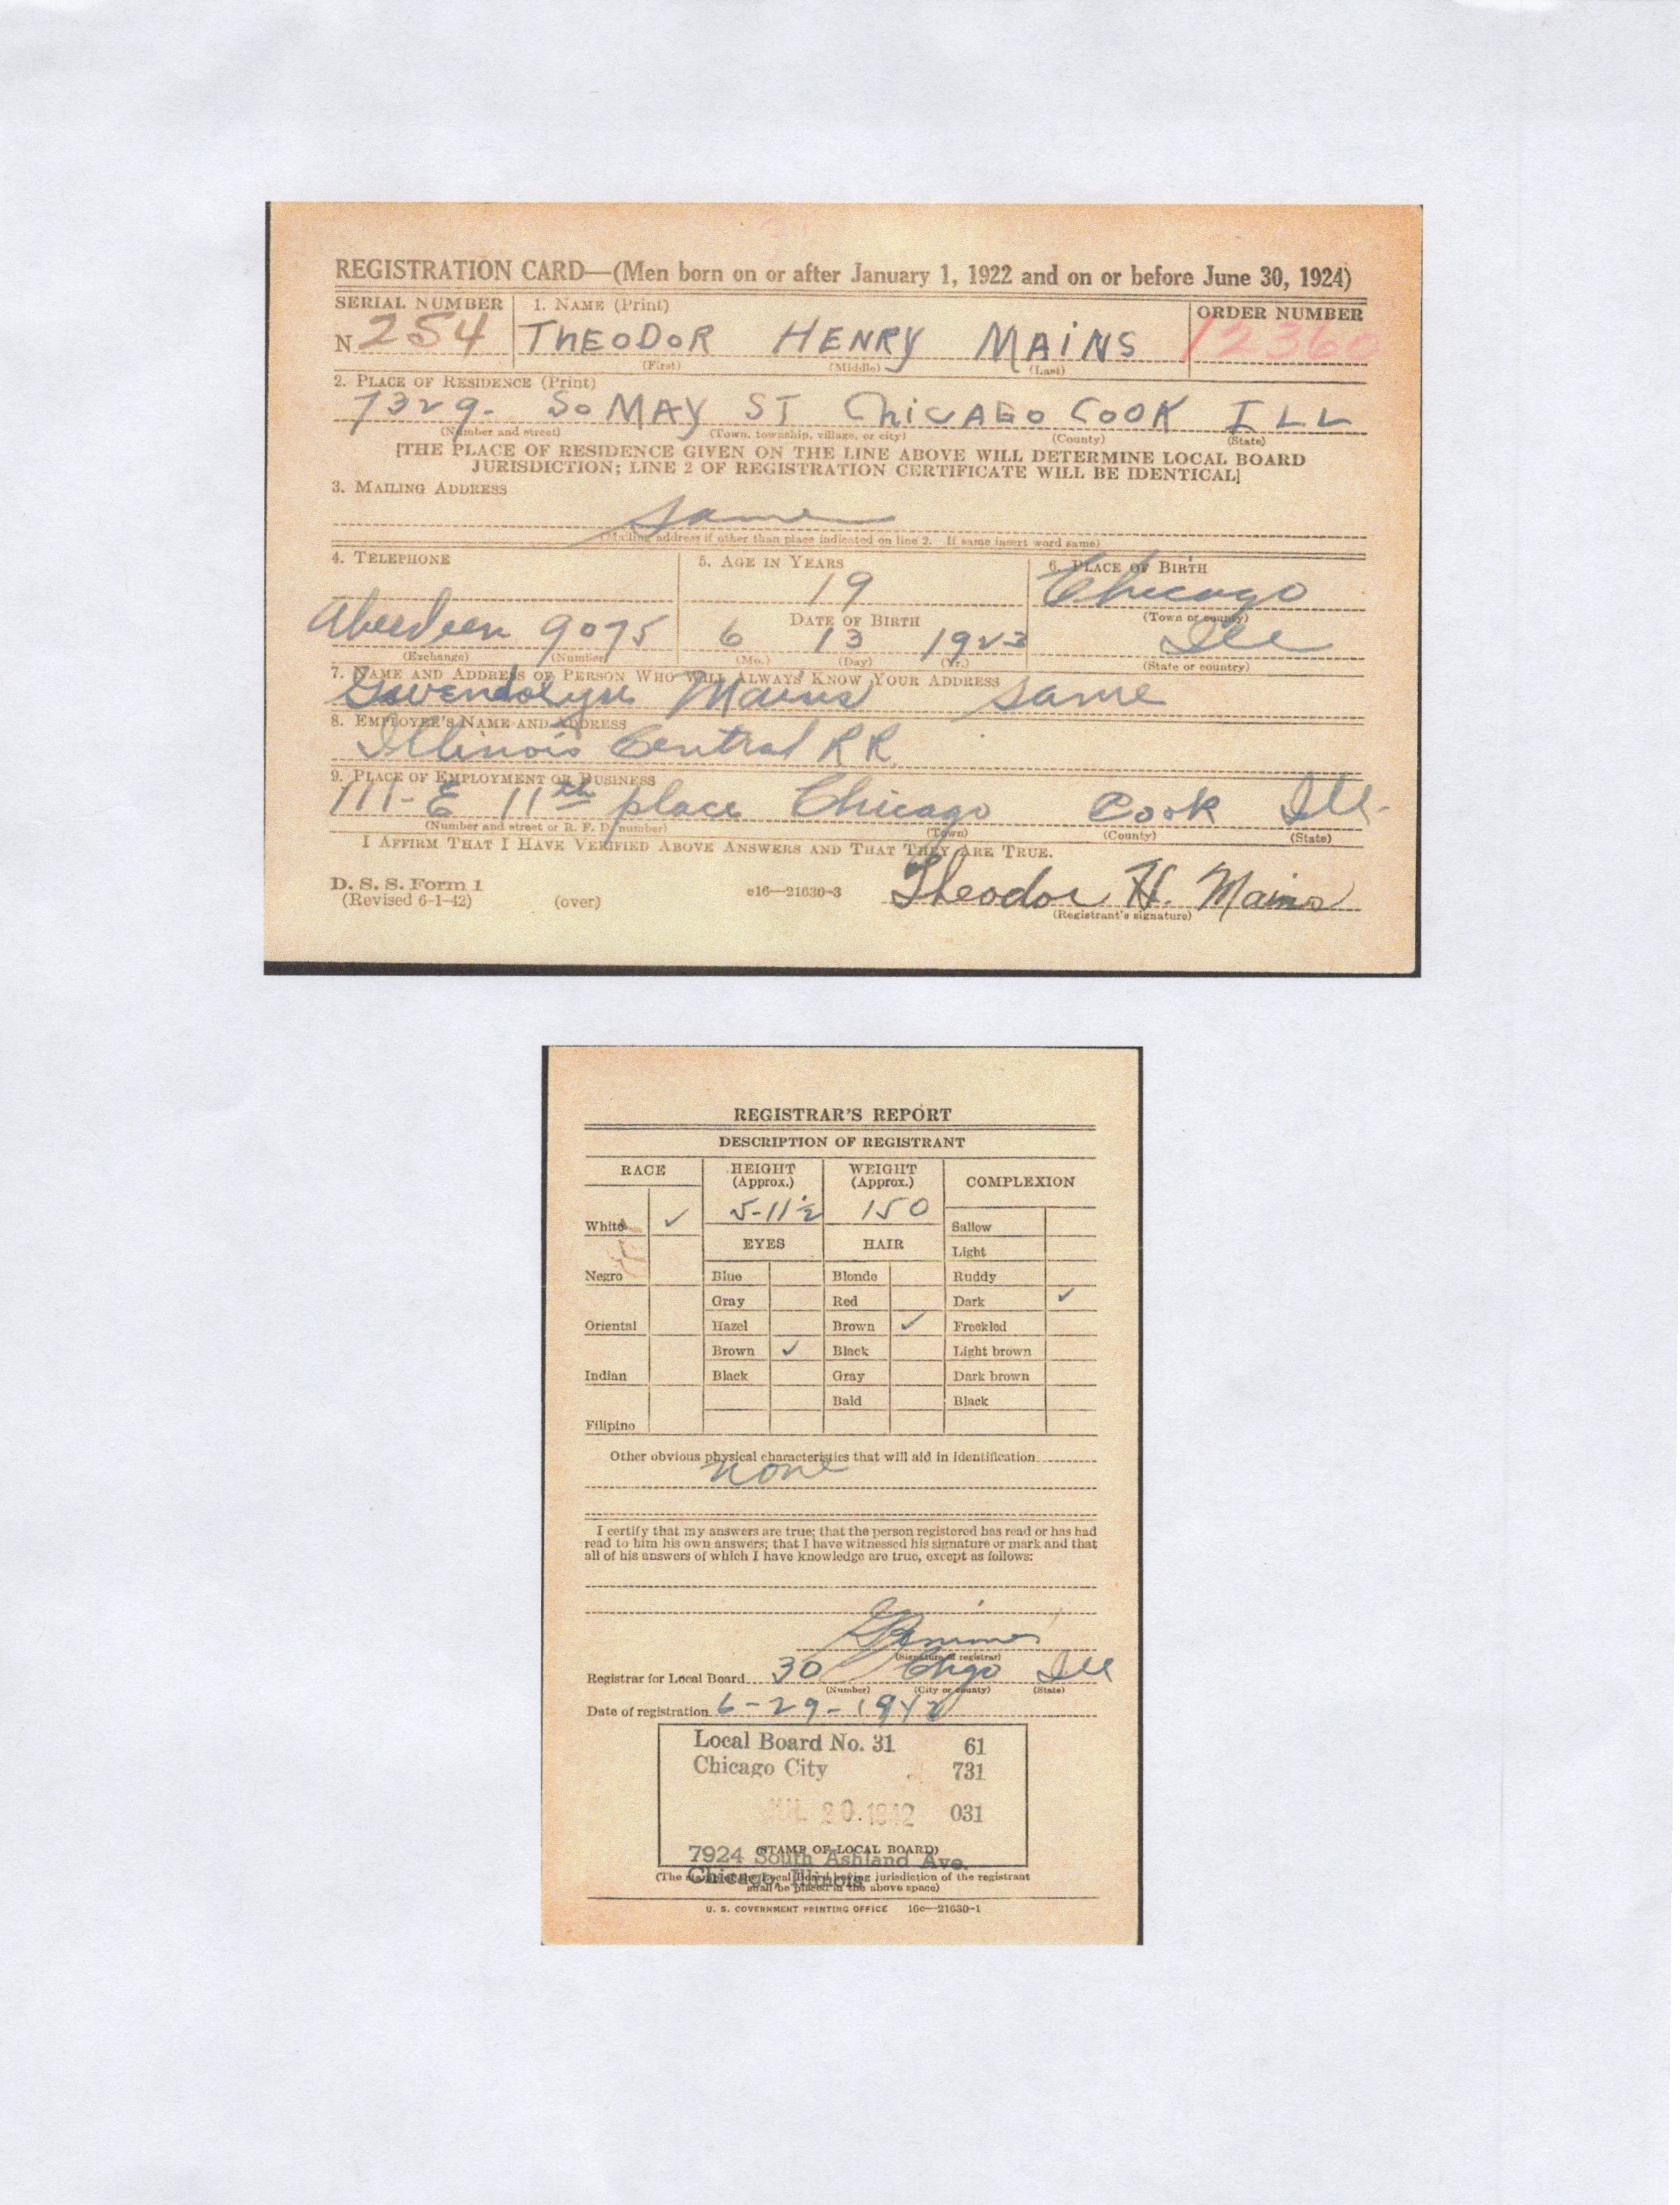 REGISTRATION CARD—(Men born on or after January 1, 1922 and on or before June 30, 1924)
SERIAL NUMBER 1. NAME (Print) ORDER NUMBER
N 254 THEODOR HENRY MAINS 12360
(First) (Middle) (Last)
2. PLACE OF RESIDENCE (Print)
7329. So MAY ST CHICAGO COOK ILL
(Number and street) (Town, township, village, or city) (County) (State)
[THE PLACE OF RESIDENCE GIVEN ON THE LINE ABOVE WILL DETERMINE LOCAL BOARD
JURISDICTION; LINE 2 OF REGISTRATION CERTIFICATE WILL BE IDENTICAL]
3. MAILING ADDRESS
Same
(Mailing address if other than place indicated on line 2. If same insert word same)
4. TELEPHONE 5. AGE IN YEARS 6. PLACE OF BIRTH
19 Chicago
DATE OF BIRTH (Town or county)
Aberdeen 9075 6 13 1923 Ill
(Exchange) (Number) (Mo.) (Day) (Yr.) (State or country)
7. NAME AND ADDRESS OF PERSON WHO WILL ALWAYS KNOW YOUR ADDRESS
Gwendolyn Mains Same
8. EMPLOYER'S NAME AND ADDRESS
Illinois Central RR.
9. PLACE OF EMPLOYMENT OR BUSINESS
111- E 11th place Chicago Cook Ill.
(Number and street or R. F. D. number) (Town) (County) (State)
I AFFIRM THAT I HAVE VERIFIED ABOVE ANSWERS AND THAT THEY ARE TRUE.
D. S. S. Form 1
(Revised 6-1-42) (over) c16—21630-3 Theodor H. Mains
(Registrant's signature)
REGISTRAR'S REPORT
DESCRIPTION OF REGISTRANT
RACE HEIGHT (Approx.) WEIGHT (Approx.) COMPLEXION
5-11½ 150
White ✓ Sallow
EYES HAIR Light
Negro Blue Blonde Ruddy
Gray Red Dark ✓
Oriental Hazel Brown ✓ Freckled
Brown ✓ Black Light brown
Indian Black Gray Dark brown
Bald Black
Filipino
Other obvious physical characteristics that will aid in identification
none
I certify that my answers are true; that the person registered has read or has had
read to him his own answers; that I have witnessed his signature or mark and that
all of his answers of which I have knowledge are true, except as follows:
(Signature of registrar)
Registrar for Local Board 30 Chgo Ill
(Number) (City or county) (State)
Date of registration 6-29-1942
Local Board No. 31 61
Chicago City 731
JUL 20 1942 031
(STAMP OF LOCAL BOARD)
7924 South Ashland Ave.
Chicago, Illinois
(The stamp of the Local Board having jurisdiction of the registrant
shall be placed in the above space)
U. S. GOVERNMENT PRINTING OFFICE 16c—21630-1